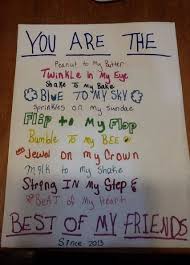 YOU ARE THE
Peanut to My Butter
Twinkle in My Eye
Shake To My Bake
BLUE TO MY SKY
Sprinkles on My Sundae
Flip to My Flop
Bumble To My BEE
Jewel on My Crown
Milk to My Shake
Strong IN My Step
BeAT of My Heart
BEST OF MY FRIENDS
Since 2013